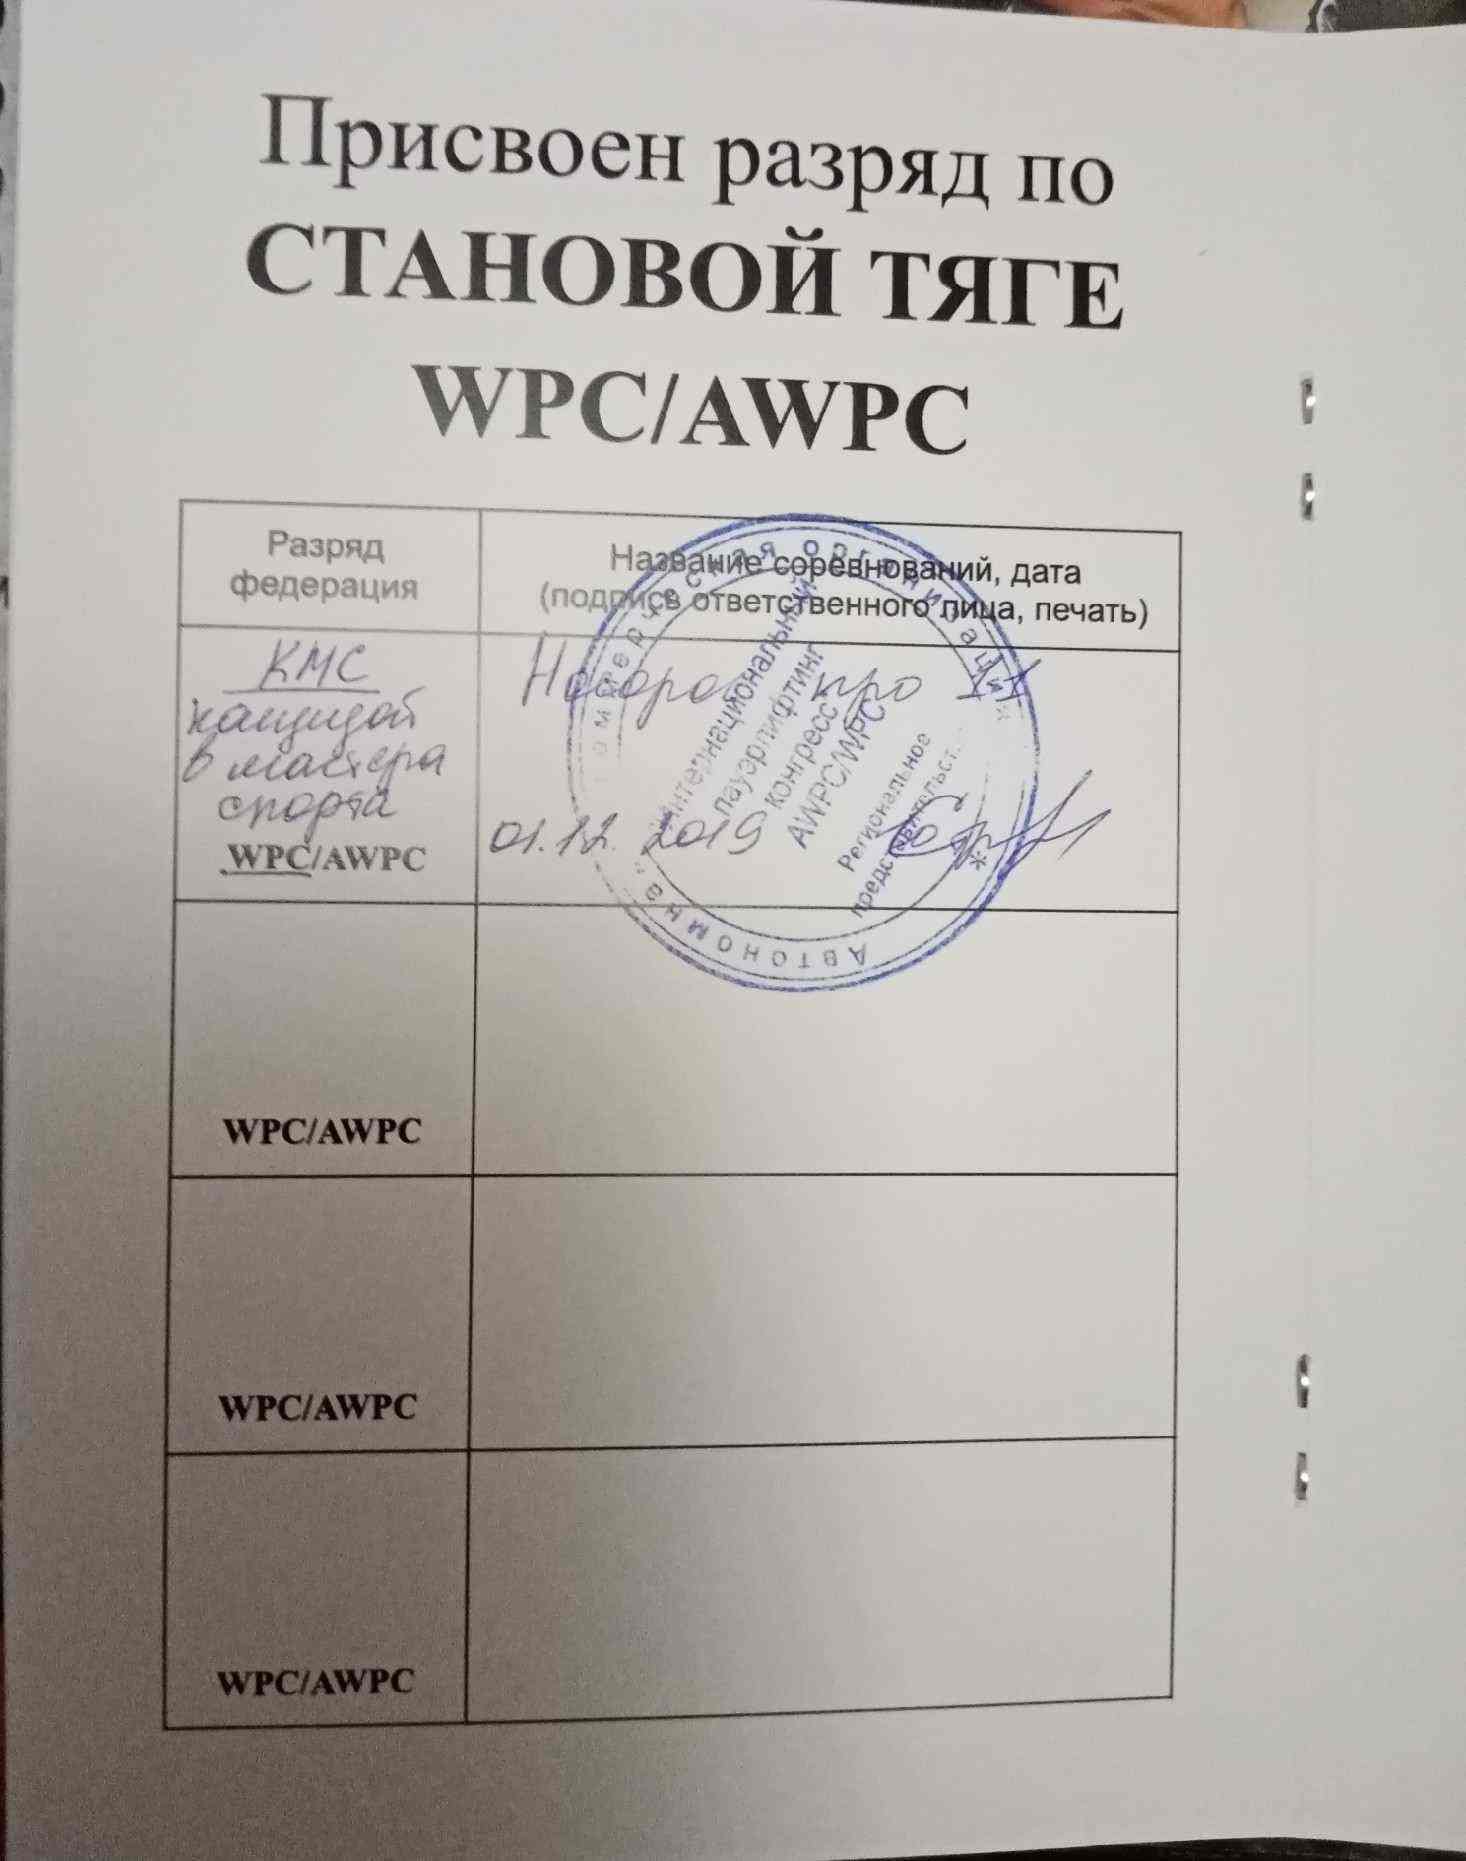 Присвоен разряд по
СТАНОВОЙ ТЯГЕ
WPC/AWPC
Разряд
федерация
Название соревнований, дата
(подпись ответственного лица, печать)
КМС
в мастера
спорта
WPC/AWPC
про
01.12.2019
Автономная некоммерческая организация
Интернациональный
пауэрлифтинг
конгресс
AWPC/WPC
Региональное
WPC/AWPC
WPC/AWPC
WPC/AWPC